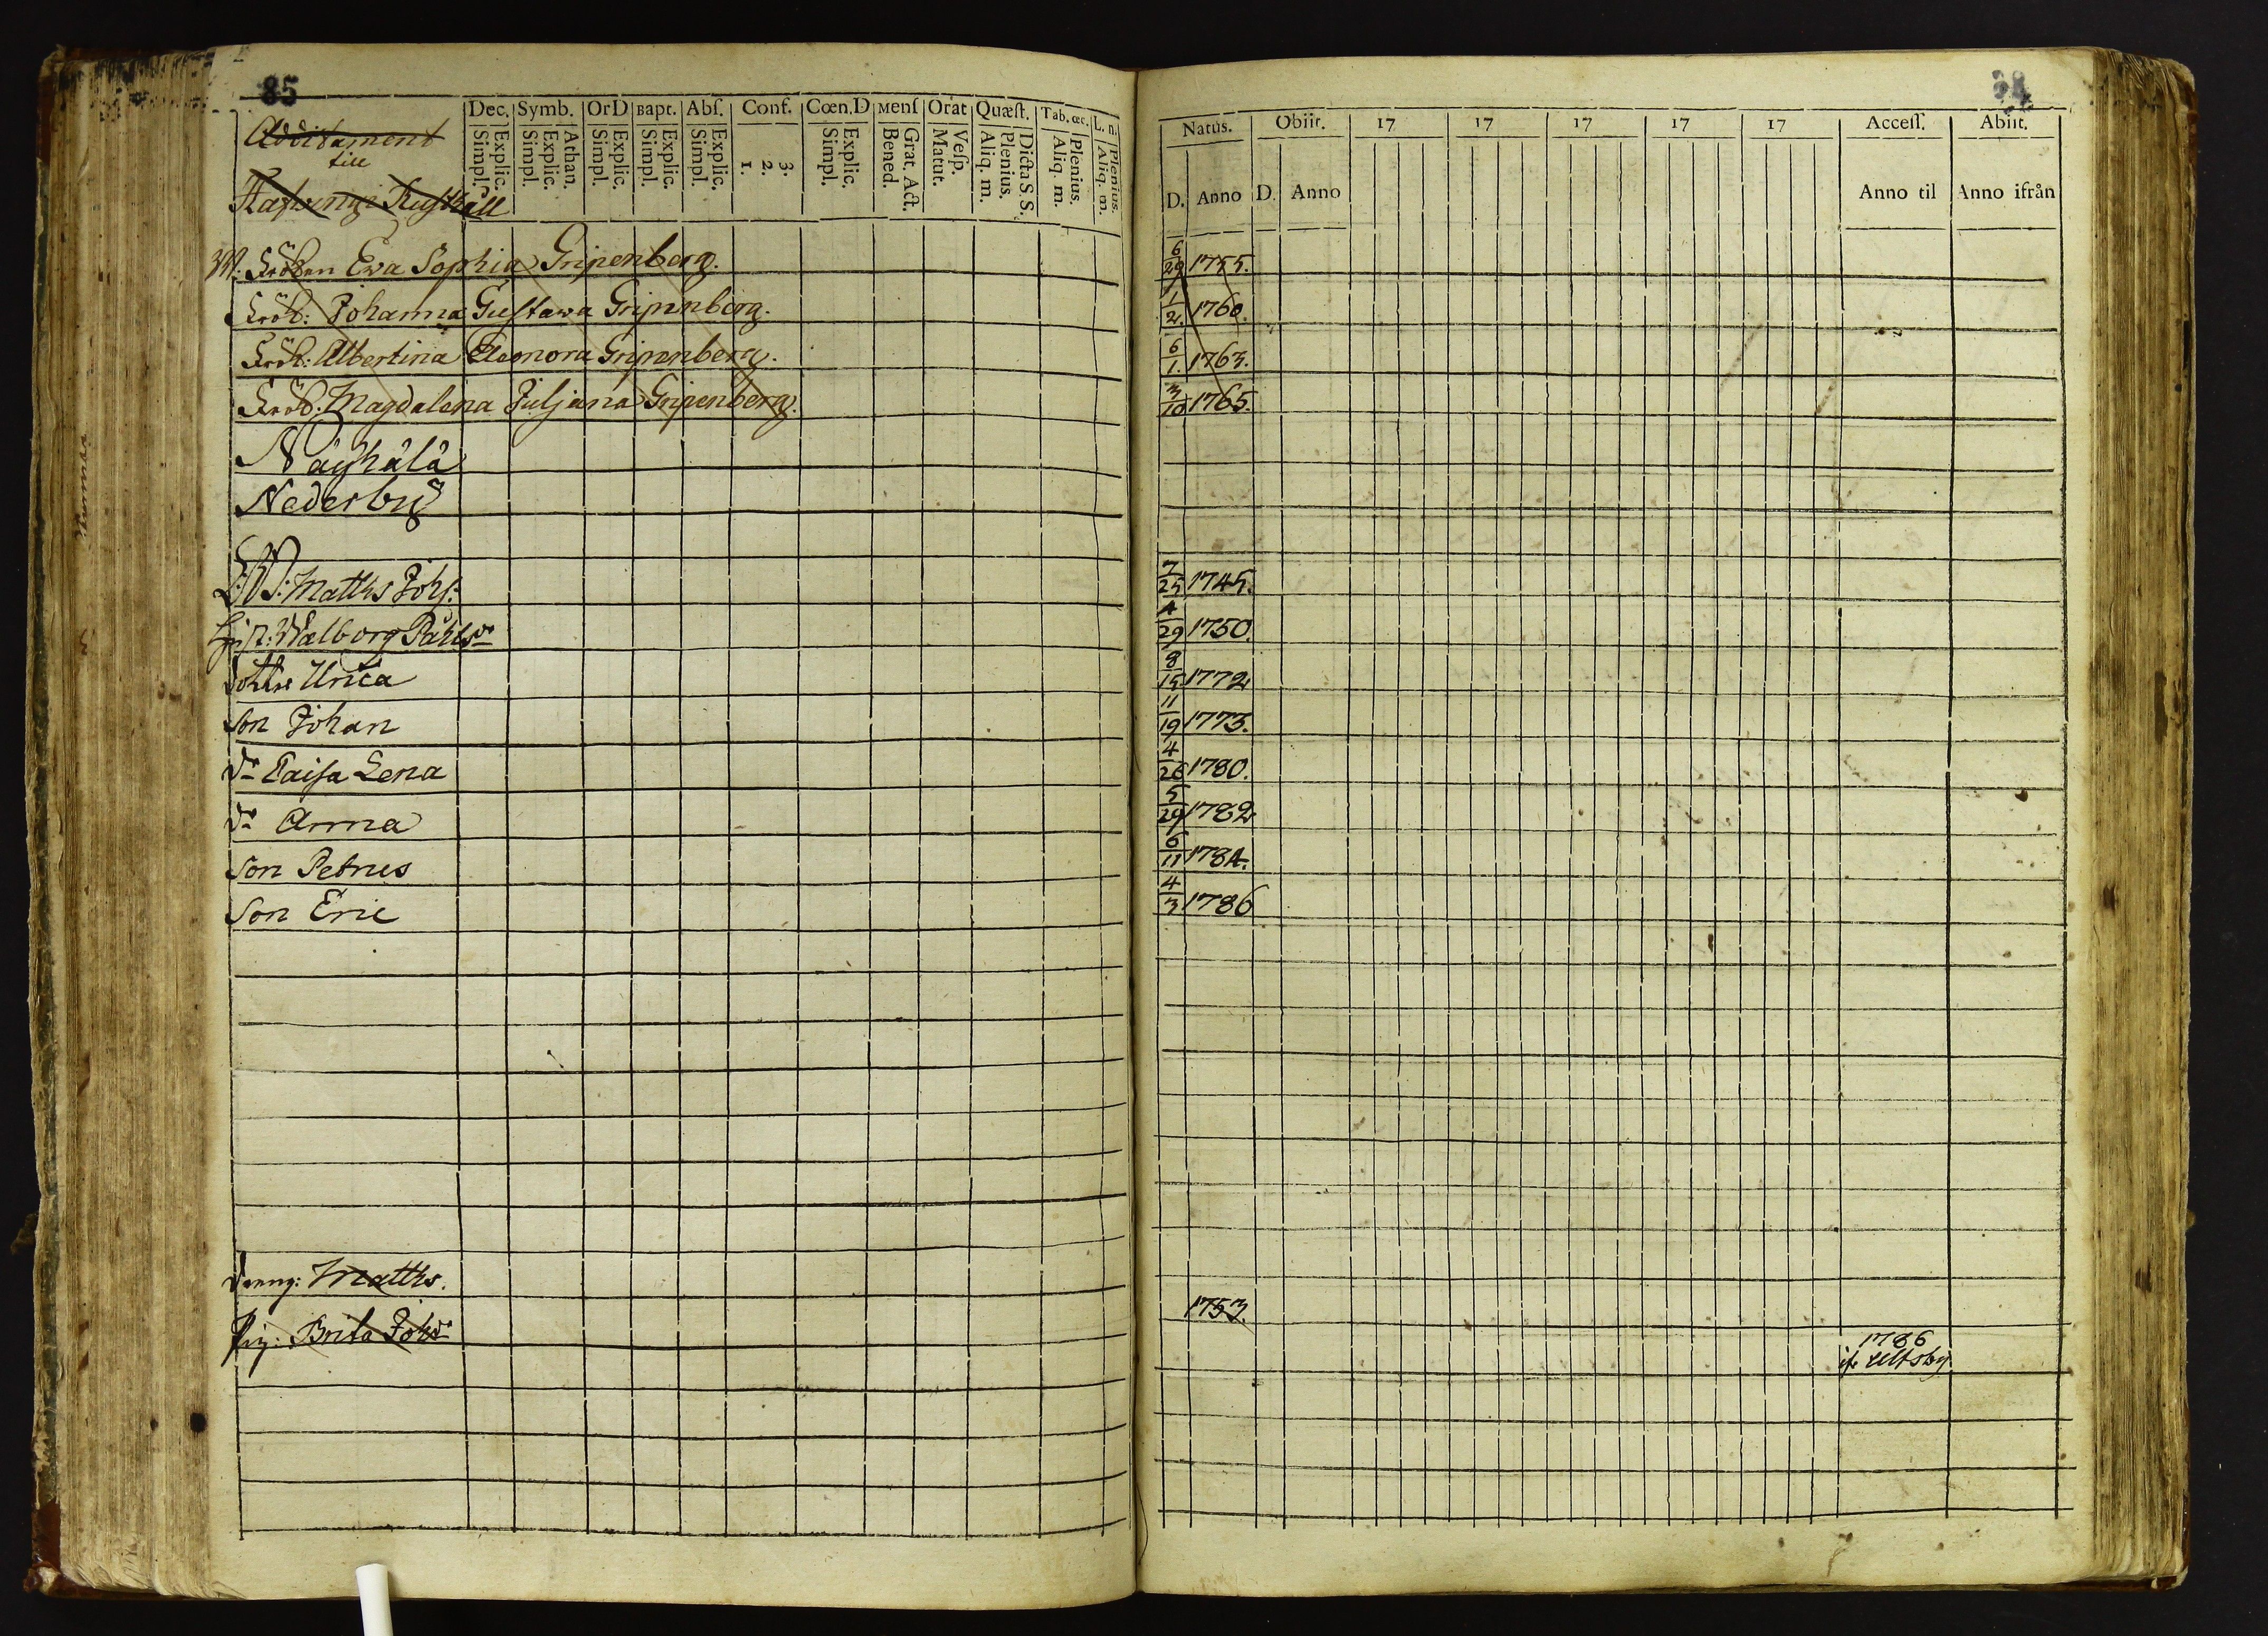 85
Additament
till
Rusthåll
Dec. Symb. OrD Bapt. Abſ. Conf. Cœn.D Menſ Orat Quæſt. Tab. œc. L. n.
Explic. Simpl. Athan. Explic. Simpl. Explic. Simpl. Explic. Simpl. Explic. Simpl. 3. 2. 1. Explic. Simpl. Grat. Act. Bened. Veſp. Matut. Dicta S. S. Plenius. Aliq. m. Plenius. Aliq. m. Plenius. Aliq. m.
Natus. Obiit. 17 17 17 17 17 Acceſſ. Abiit.
D. Anno D. Anno Anno til Anno ifrån
Fröken Ewa Sophia Gripenberg. 6/29 1755.
Frök: Johanna Gustawa Gripenberg. 1/2. 1760.
Frök: Albertina Eleonora Gripenberg. 6/1. 1763.
Frök: Magdalena Juljana Gripenberg. 3/10 1765.
Nederby
Matths Johs: 7/25 1745.
Hust: Walborg Påhlsdr 4/29 1750.
dotter Ulrica 8/15 1772
Son Johan 11/19 1773.
dr Caisa Lena 4/26 1780.
dr Anna 5/29 1782
Son Petrus 6/11 1784.
Son Eric 4/3 1786
dreng: Matths.
Pig: Brita Johsdr 1753.
1786
if. Ultsby.